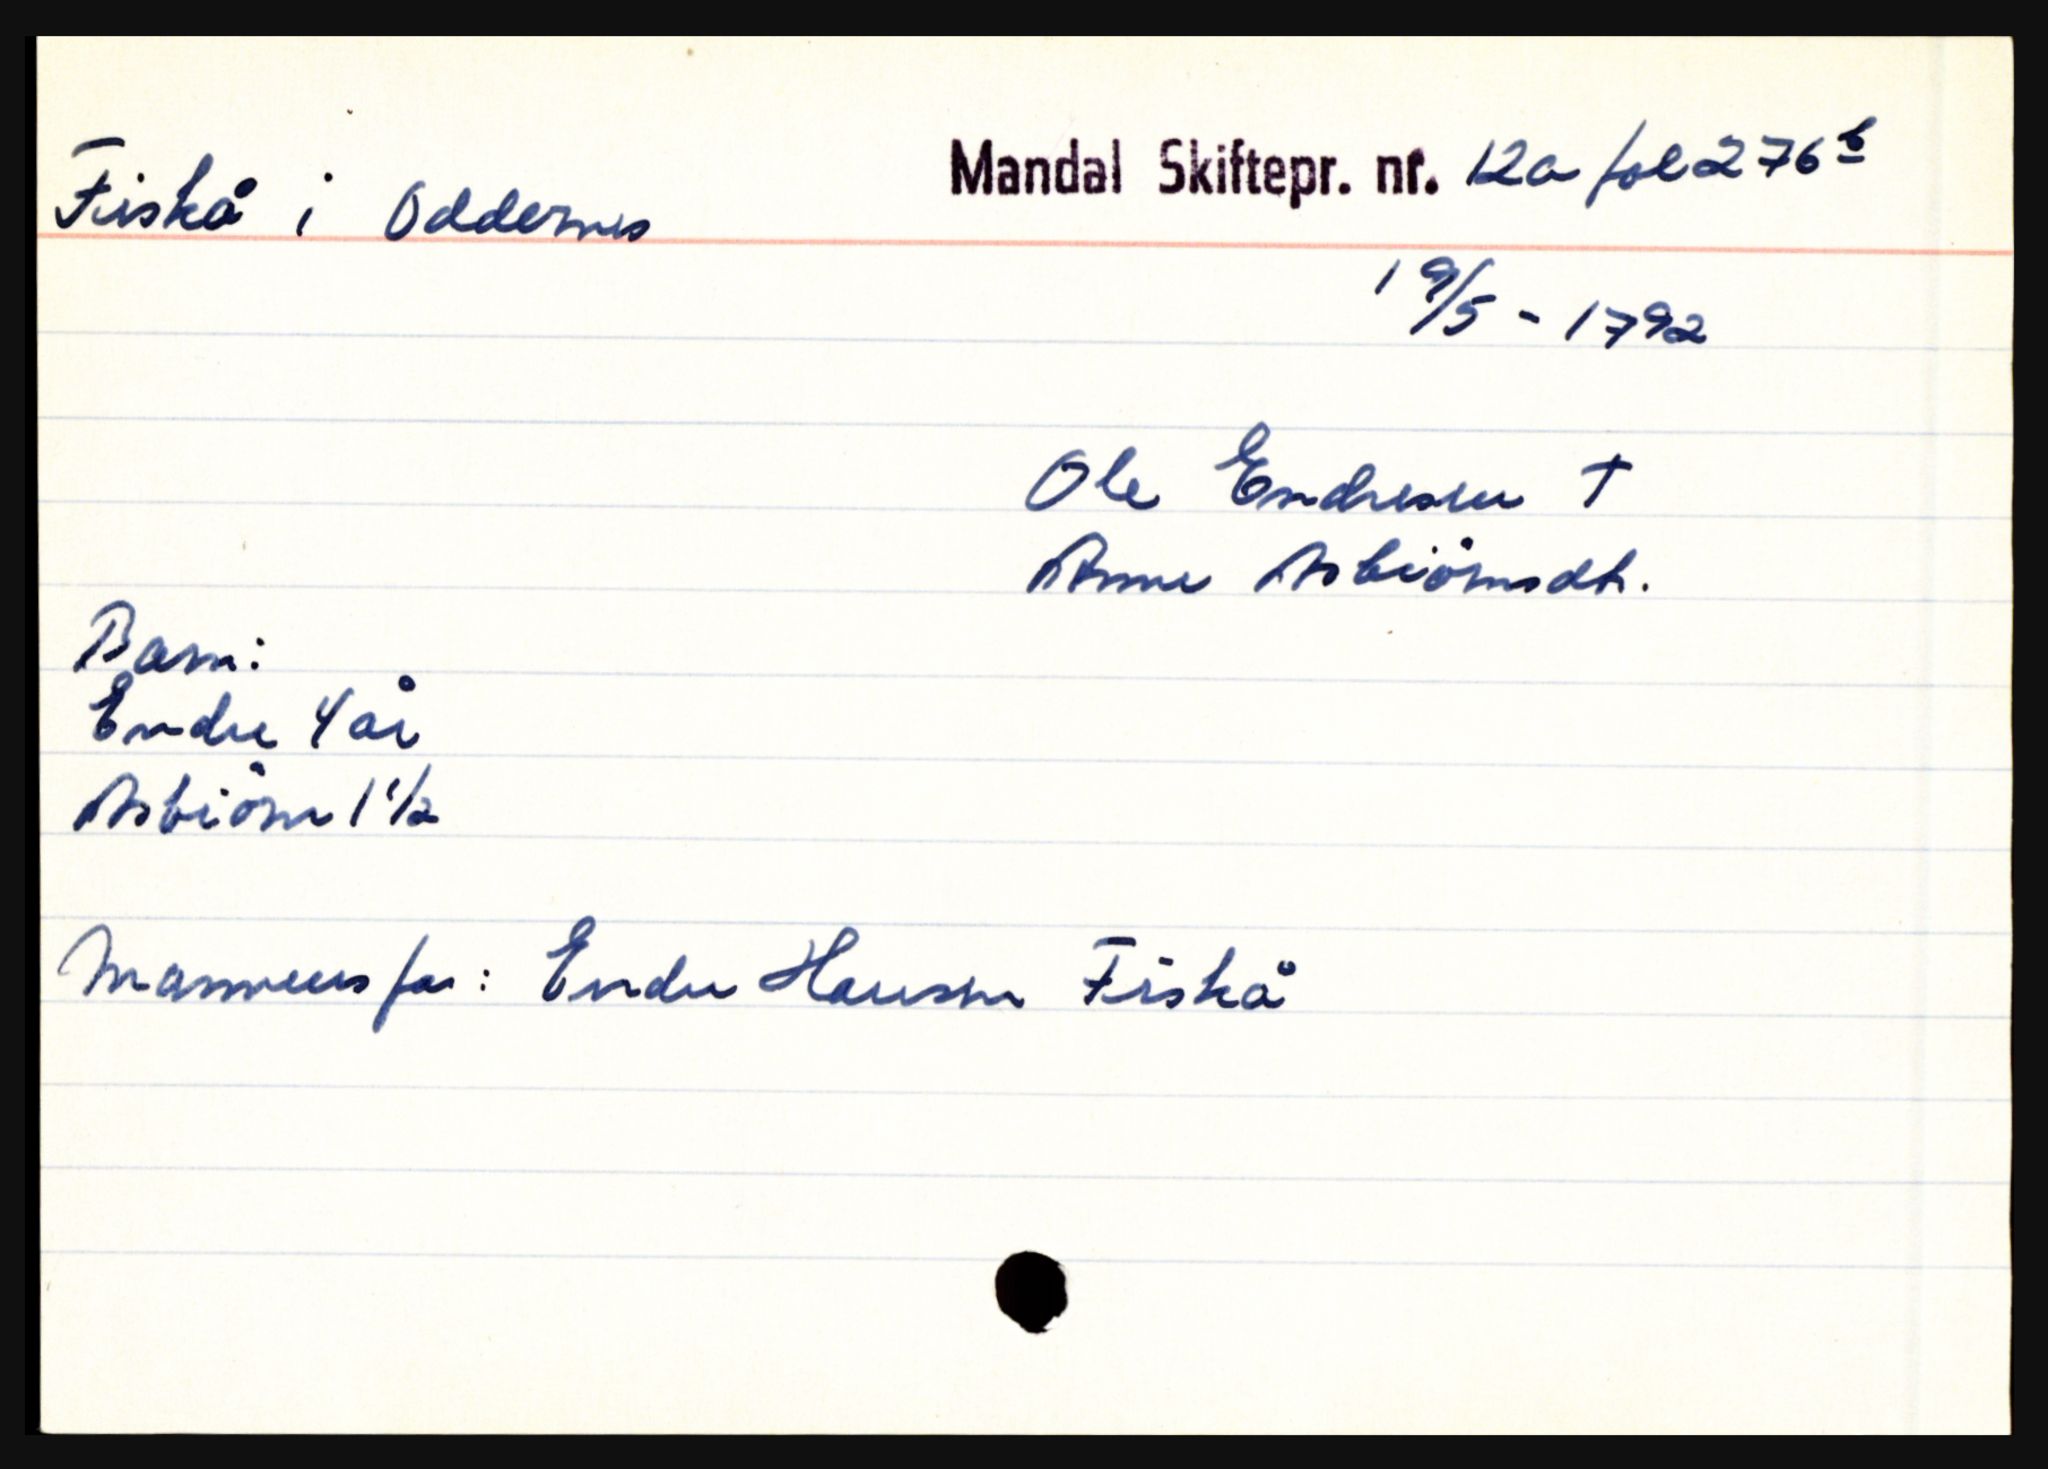 Fiskå i Oddernes
Mandal Skiftepr. nr. 12a fol 276b
19/5 - 1792
Ole Endresen †
Anne Asbiörnsdt.
Barn:
Endre 4 år
Asbiörn 1 1/2
Mannens far: Endre Hansen Fiskå